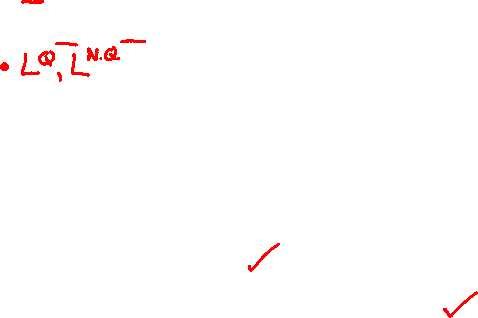 • L^Q‾, L^N.Q‾